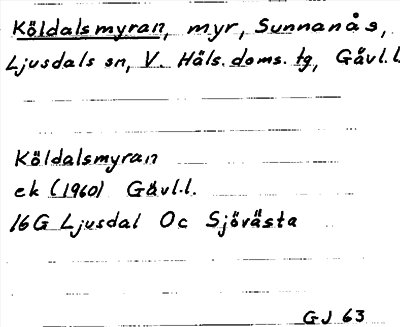 Köldalsmyran, myr, Sunnanås,
Ljusdals sn, V. Häls. doms. tg, Gävl.l
Köldalsmyran
ek (1960) Gävl.l.
16G Ljusdal Oc Sjövästa
GJ 63